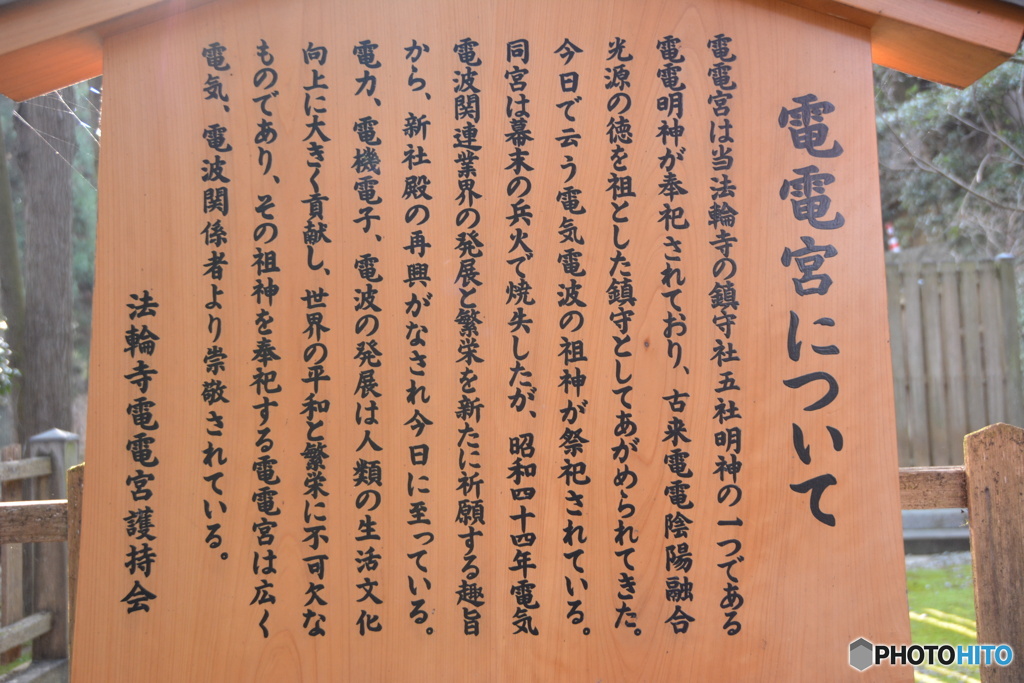 電電宮について
電電宮は当法輪寺の鎮守社五社明神の一つである
電電明神が奉祀されており、古来電電陰陽融合
光源の徳を祖とした鎮守としてあがめられてきた。
今日で云う電気電波の祖神が祭祀されている。
同宮は幕末の兵火で焼失したが、昭和四十四年電気
電波関連業界の発展と繁栄を新たに祈願する趣旨
から、新社殿の再興がなされ今日に至っている。
電力、電機電子、電波の発展は人類の生活文化
向上に大きく貢献し、世界の平和と繁栄に不可欠な
ものであり、その祖神を奉祀する電電宮は広く
電気、電波関係者より崇敬されている。
法輪寺電電宮護持会
PHOTOHITO